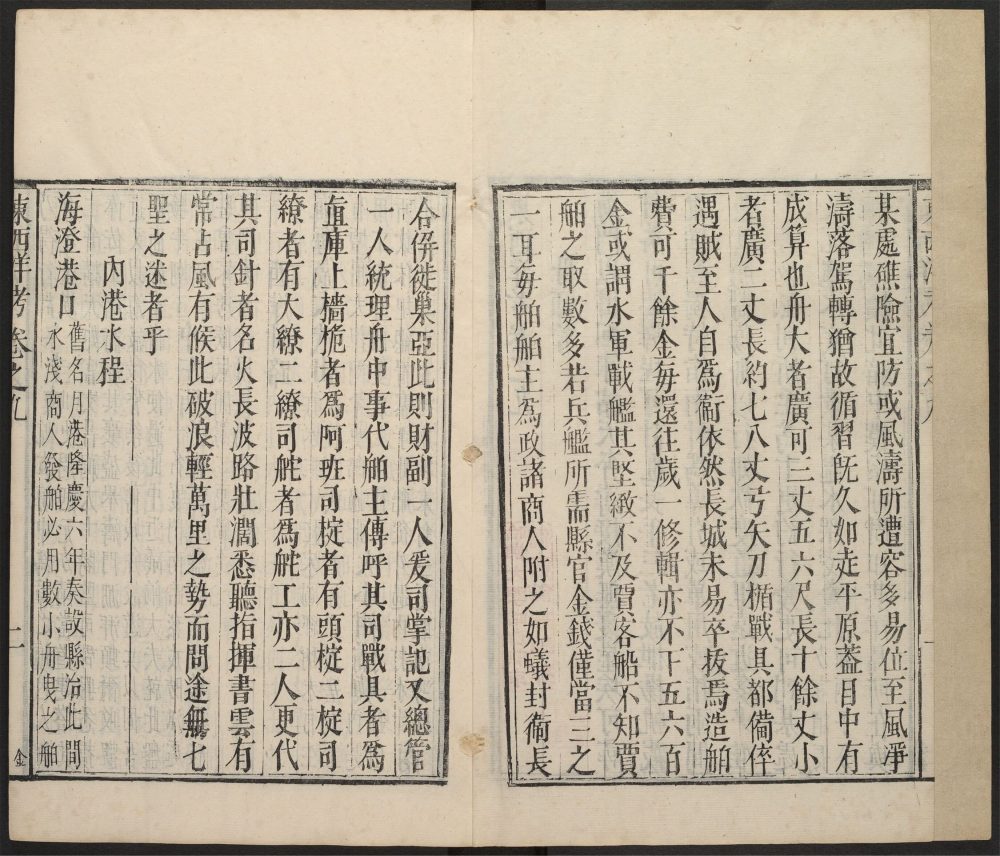 某處礁險宜防或風濤所遭容多易位至風淨
濤落駕轉猶故循習旣久如走平原葢目中有
成算也舟大者廣可三丈五六尺長十餘丈小
者廣二丈長約七八丈弓矢刀楯戰具都備倅
遇賊至人自爲衞依然長城未易卒拔焉造舶
費可千餘金每還往歲一修輯亦不下五六百
金或謂水軍戰艦其堅緻不及賈客船不知賈
舶之取數多若兵艦所需縣官金錢僅當三之
一耳每舶舶主爲政諸商人附之如蟻封衞長
合併徙巢亞此則財副一人爰司掌記又總管
一人統理舟中事代舶主傳呼其司戰具者爲
直庫上檣桅者爲阿班司椗者有頭椗二椗司
繚者有大繚二繚司舵者爲舵工亦二人更代
其司針者名火長波路壯濶悉聽指揮書雲有
常占風有候此破浪輕萬里之勢而問途無七
聖之迷者乎
內港水程
海澄港口 舊名月港隆慶六年奏設縣治此間
水淺商人發舶必用數小舟曳之舶
東西洋考 卷之九 二 金